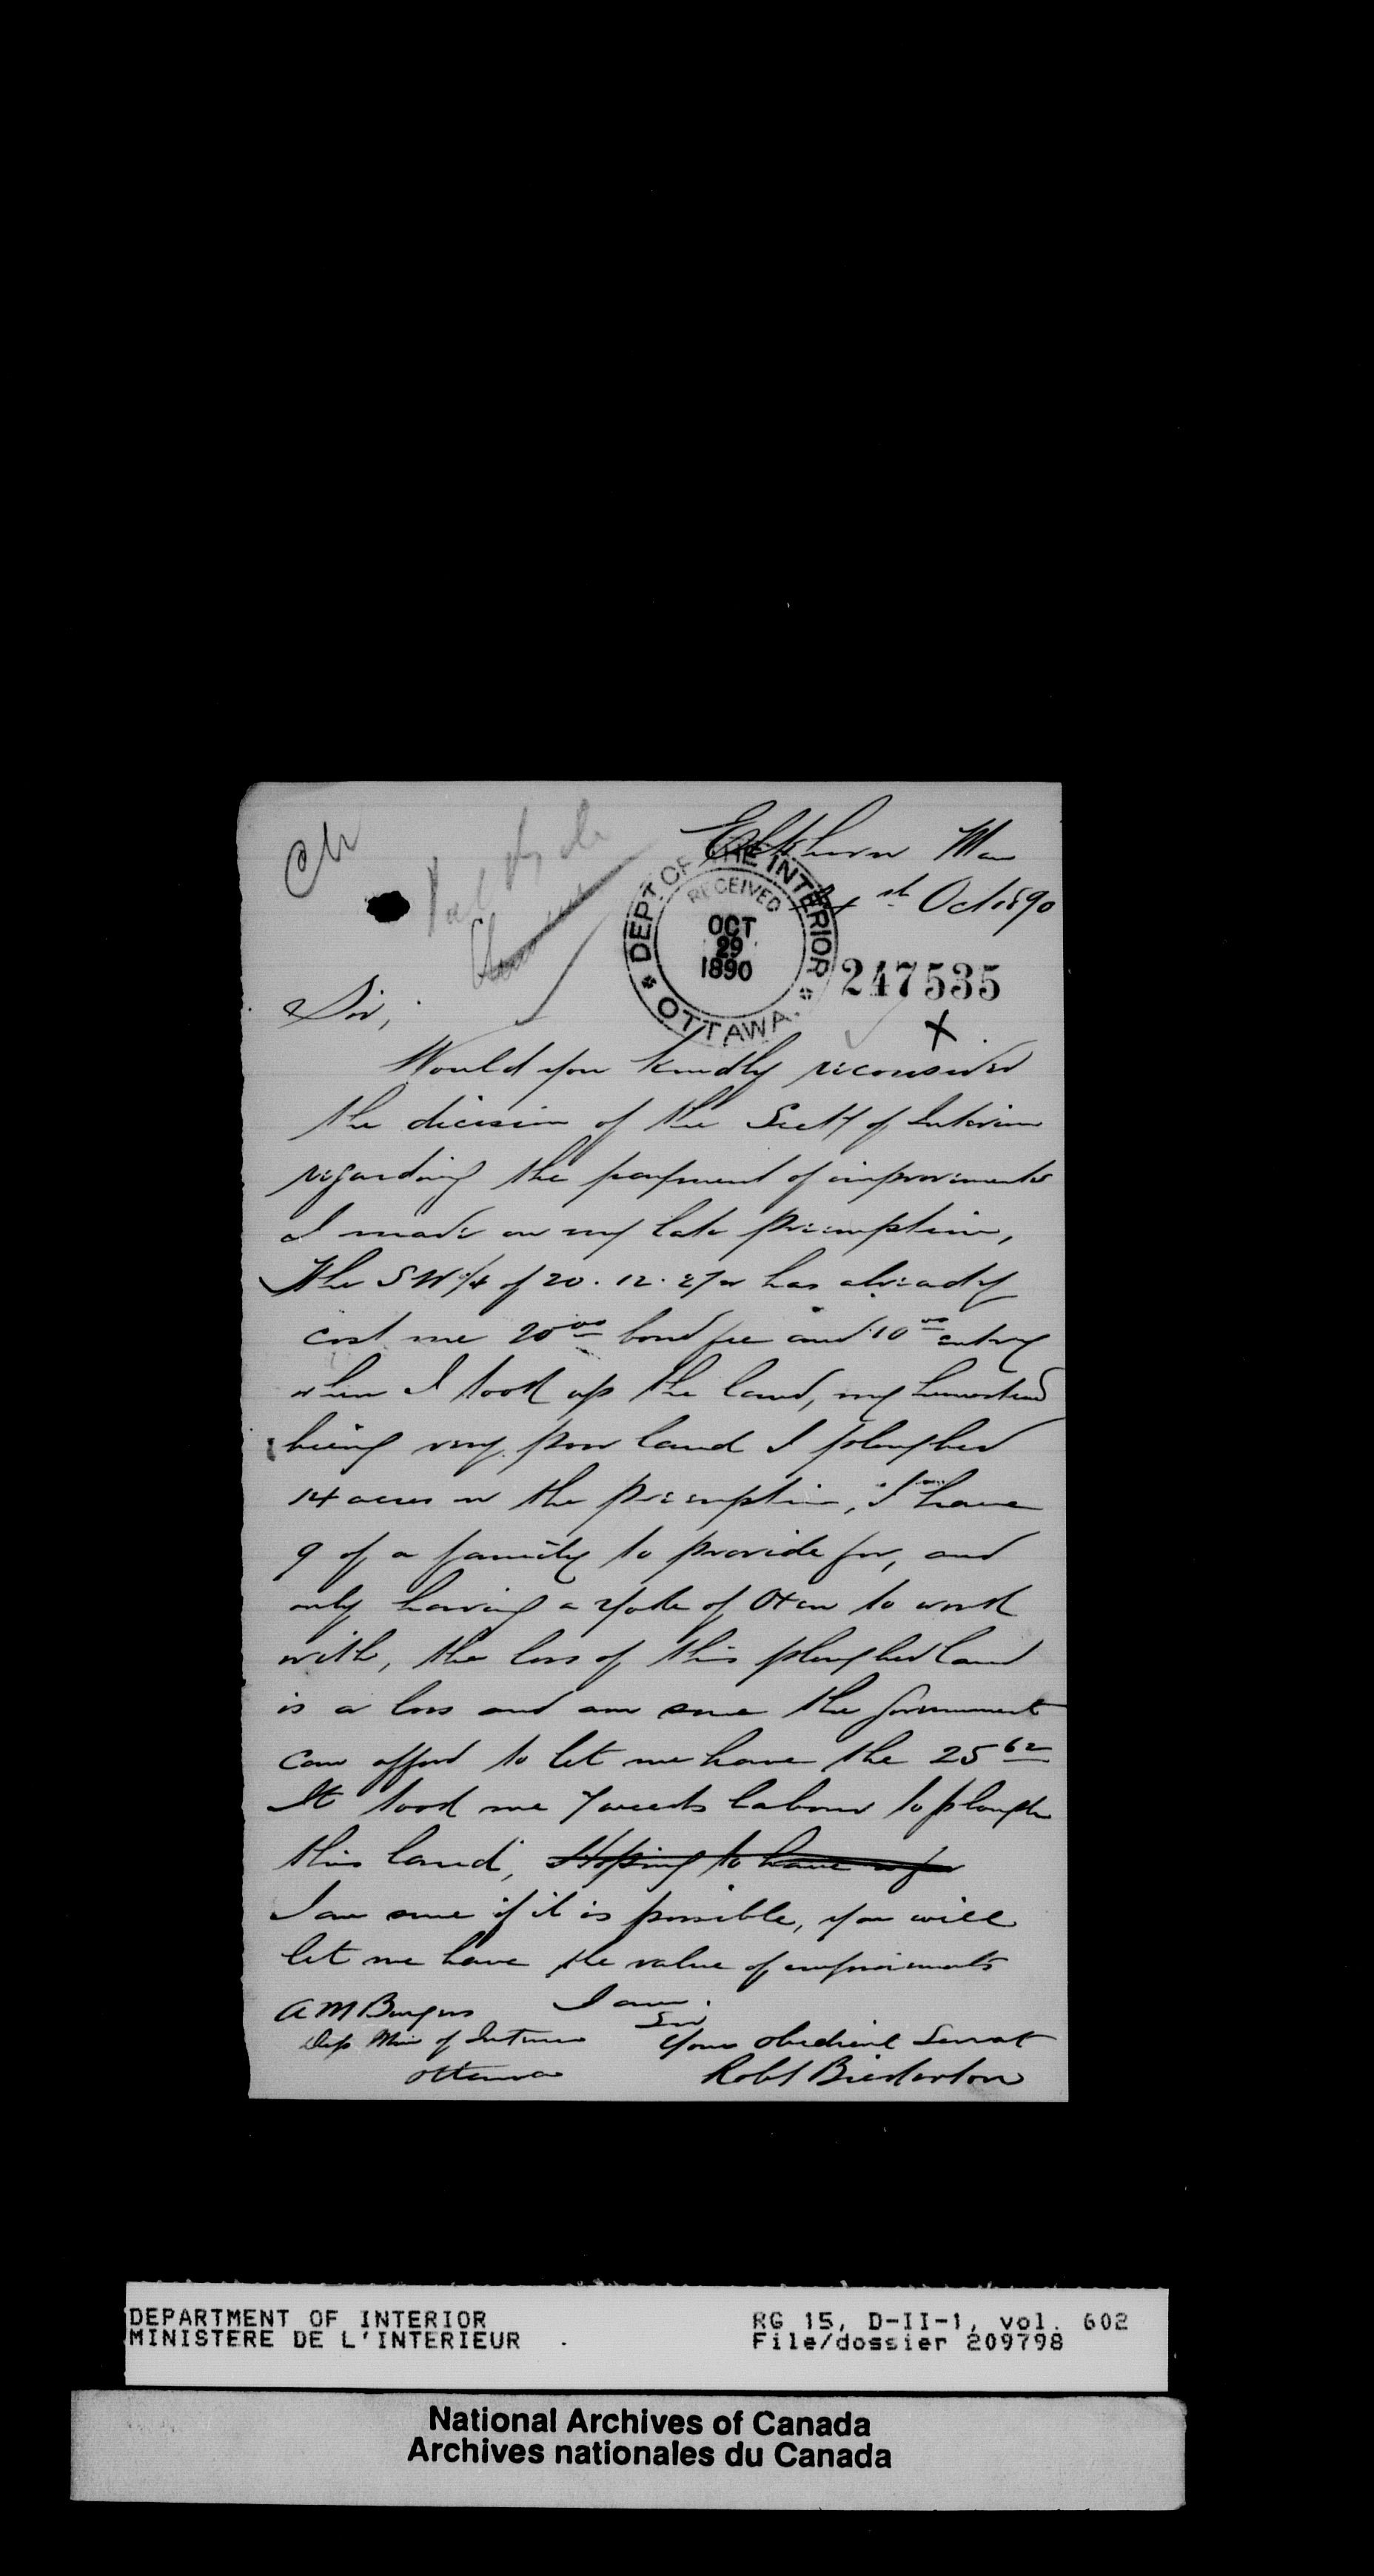 Elkhorn Man
21st Oct 1890
DEPT. OF THE INTERIOR
RECEIVED
OCT
29
1890
OTTAWA.
247535
X
Sir,
Would you kindly reconsider
the dicision of the Secty of Interior
regarding the payment of improvements
I made on my late Preemption,
The SW 1/4 of 20. 12. 27 w has already
cost me 20 00 bond fee and 10 00 entry
when I took up the land, my homestead
being very poor land I ploughed
14 acres on the Preemption, I have
9 of a family to provide for, and
only having a yoke of Oxen to work
with, the loss of this ploughed land
is a loss and am sure the government
can afford to let me have the 25 62
It took me 7 weeks labour to plough
this land, Hoping to have
I am sure if it is possible, you will
let me have the value of improvements
I am.
Sir
A M Burgess
Dep Min of Interior
Ottawa
Your obedient Servat
Robt Brierton
DEPARTMENT OF INTERIOR
MINISTERE DE L'INTERIEUR
RG 15, D-II-1, vol. 602
File/dossier 209798
National Archives of Canada
Archives nationales du Canada